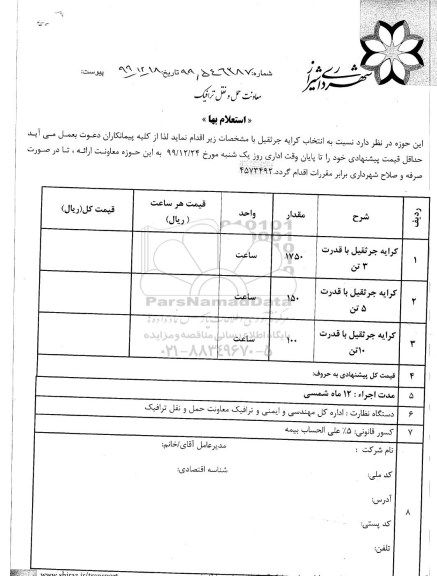 شهرداری شیراز
شماره: ۹۹،۵۴۶۲۸۷ تاریخ: ۹۹،۱۲،۱۸ پیوست:
معاونت حمل و نقل ترافیک
« استعلام بها »
این حوزه در نظر دارد نسبت به انتخاب کرایه جرثقیل با مشخصات زیر اقدام نماید لذا از کلیه پیمانکاران دعوت بعمل می آید
حداقل قیمت پیشنهادی خود را تا پایان وقت اداری روز یک شنبه مورخ ۹۹/۱۲/۲۴ به این حوزه معاونت ارائه ، تا در صورت
صرفه و صلاح شهرداری برابر مقررات اقدام گردد.۴۵۷۳۴۹۲
ردیف شرح مقدار واحد قیمت هر ساعت ( ریال) قیمت کل(ریال)
۱ کرایه جرثقیل با قدرت ۳ تن ۱۷۵۰ ساعت
۲ کرایه جرثقیل با قدرت ۵ تن ۱۵۰ ساعت
۳ کرایه جرثقیل با قدرت ۱۰تن ۱۰۰ ساعت
ParsNamadData
پایگاه اطلاع رسانی مناقصه و مزایده
۰۲۱-۸۸۳۴۹۶۷۰-۵
۴ قیمت کل پیشنهادی به حروف:
۵ مدت اجراء : ۱۲ ماه شمسی
۶ دستگاه نظارت : اداره کل مهندسی و ایمنی و ترافیک معاونت حمل و نقل ترافیک
۷ کسور قانونی: ۵٪ علی الحساب بیمه
۸ نام شرکت : مدیرعامل آقای/خانم:
کد ملی: شناسه اقتصادی:
آدرس:
کد پستی:
تلفن: